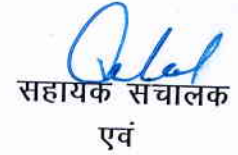 सहायक संचालक
एवं